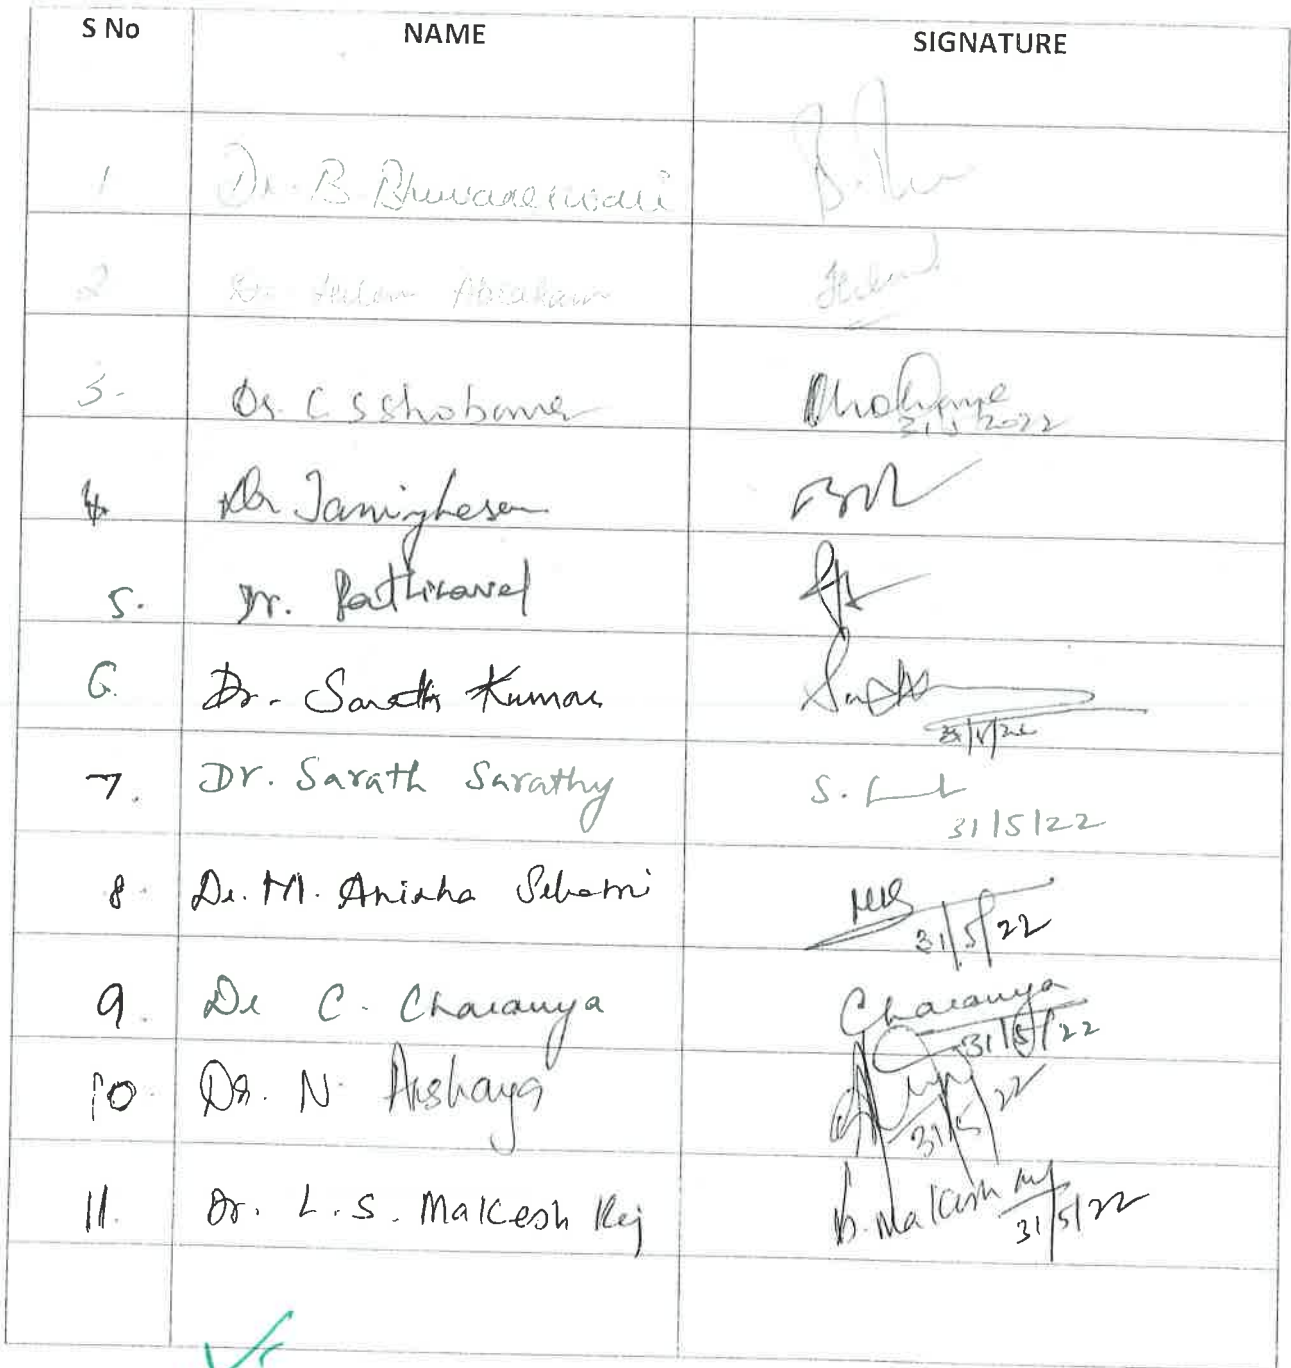 S No NAME SIGNATURE
1 Dr. B. Bhuvaneswari
2 Dr. Helen Abraham
3. Dr. C S Shobana 31/5/2022
4. Dr
5. Dr. Kathiravel
6. Dr. Sarath Kumar
7. Dr. Sarath Sarathy S. 31/5/22
8. Dr. M. Anisha Sebatni 31/5/22
9. Dr C. Charanya Charanya 31/5/22
10. Dr. N. Akshaya 31/5/22
11. Dr. L.S. Makesh Raj 31/5/22